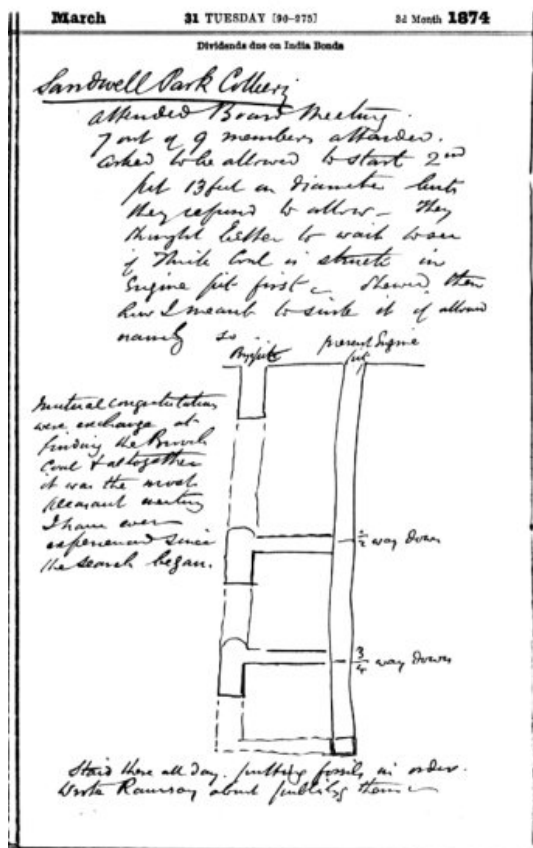 March 31 TUESDAY [90-275] 3d Month 1874
Dividends due on India Bonds
Sandwell Park Colliery
attended Board Meeting.
7 out of 9 members attended.
asked to be allowed to start 2nd
pit 13 feet in diameter but
they refused to allow – They
thought better to wait to see
if Thick Coal is struck in
Engine pit first – Shewed them
how I meant to sink it if allowed
namely so ...
present Engine
pit
Mutual congratulations
were exchange at
finding the Brooch
Coal & altogether
it was the most
pleasant meeting
I have ever
experienced since
the search began.
1/2 way down
3/4 way down
Staid there all day. putting fossils in order.
Wrote Ramsay about them